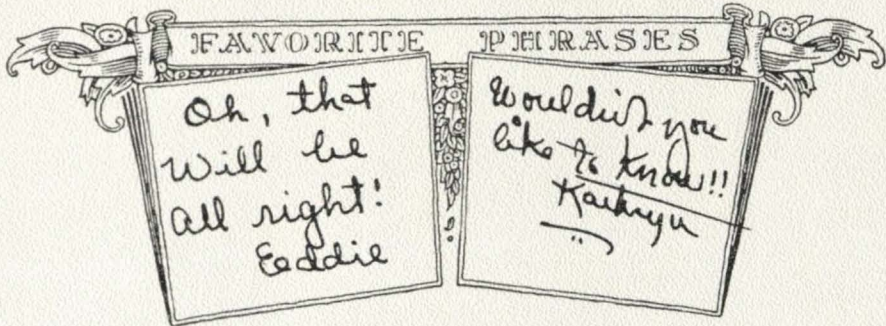 FAVORITE PHRASES
Oh, that
will be
all right!
Eeddie
Wouldn't you
like to know!!
Kathryn